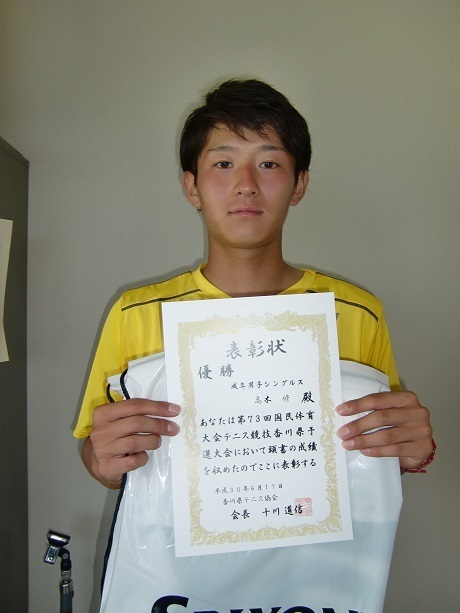 表彰状
優勝
成年男子シングルス
高木 修 殿
あなたは第73回国民体育
大会テニス競技香川県予
選大会において頭書の成績
を収めたのでここに表彰する
平成30年6月17日
香川県テニス協会
会長 十川 進信
SRIXON